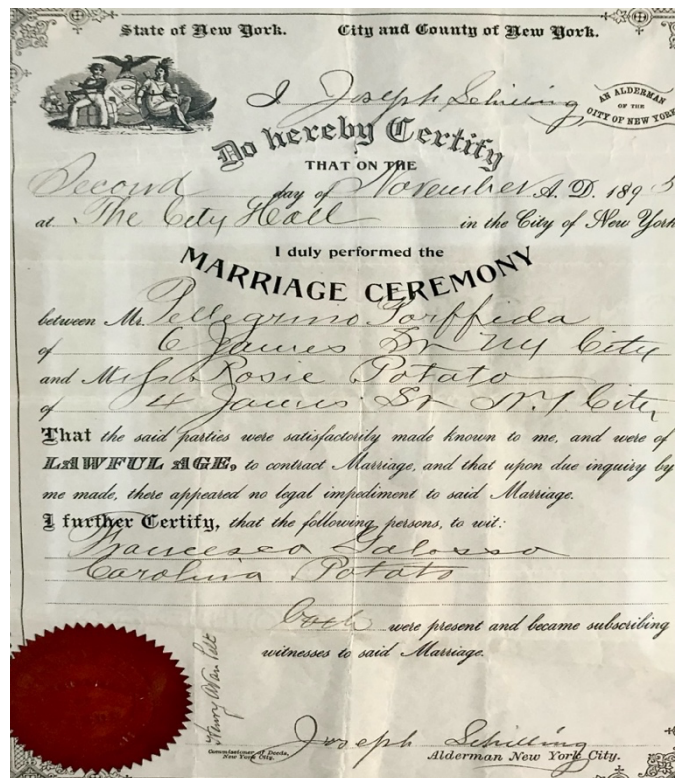 State of New York. City and County of New York.
I Joseph Schilling AN ALDERMAN OF THE CITY OF NEW YORK
Do hereby Certify
THAT ON THE
Second day of November A. D. 1895
at The City Hall in the City of New York
I duly performed the
MARRIAGE CEREMONY
between Mr. Pellegrino Porffida
of 6 James St NY City
and Miss Rosie Potato
of 4 James St N.Y. City
That the said parties were satisfactorily made known to me, and were of
LAWFUL AGE, to contract Marriage, and that upon due inquiry by
me made, there appeared no legal impediment to said Marriage.
I further Certify, that the following persons, to wit:
Francesco
Carolina Potato
Both were present and became subscribing
witnesses to said Marriage.
Henry A Van Pelt
Commissioner of Deeds,
New York City.
Joseph Schilling
Alderman New York City.